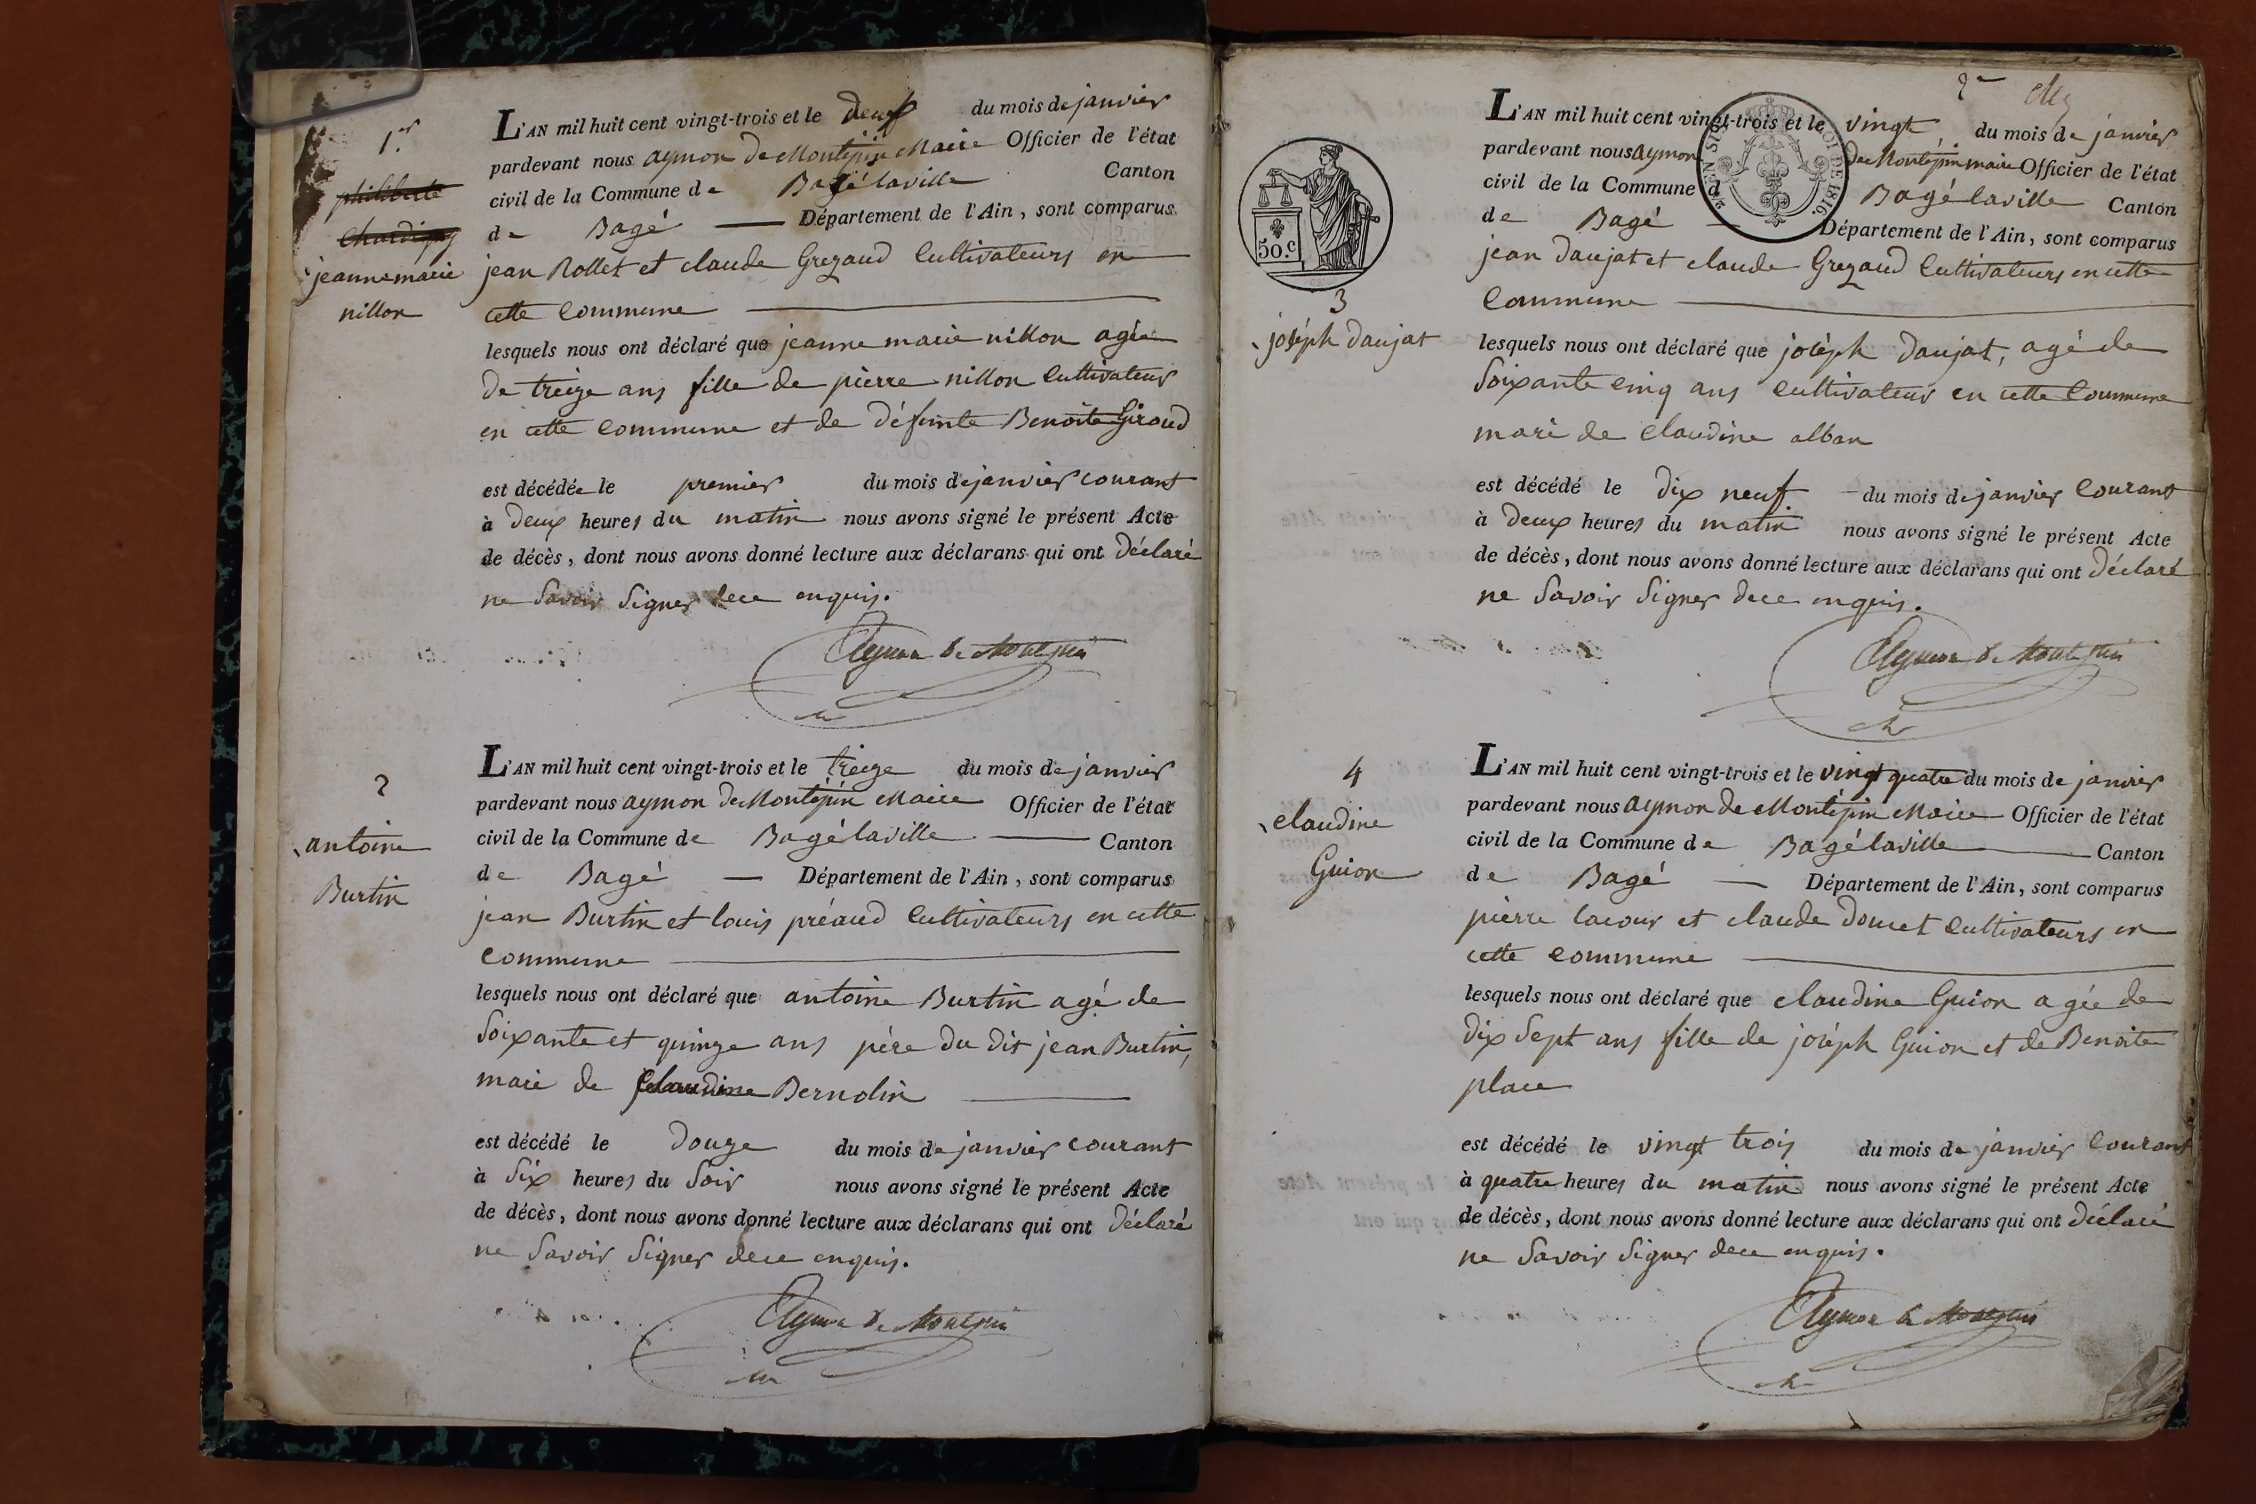 1.r
philiberte
Chardigny
jeanne marie
nillon
L'AN mil huit cent vingt-trois et le deux du mois de janvier
pardevant nous aymon de Montépin Maire Officier de l'état
civil de la Commune de Bagé laville Canton
de Bagé Département de l'Ain, sont comparus
jean Rollet et claude Grezaud Cultivateurs en
cette Commune
lesquels nous ont déclaré que jeanne marie nillon agée
de treize ans fille de pierre nillon Cultivateur
en cette Commune et de défunte Benoite Giroud
est décédée le premier du mois de janvier courant
à deux heures du matin nous avons signé le présent Acte
de décès, dont nous avons donné lecture aux déclarans qui ont déclaré
ne Savoir Signer de ce enquis.
Aymon de Montepin
2
antoine
Burtin
L'AN mil huit cent vingt-trois et le treize du mois de janvier
pardevant nous aymon de Montépin Maire Officier de l'état
civil de la Commune de Bagé laville Canton
de Bagé Département de l'Ain, sont comparus
jean Burtin et louis préaud Cultivateurs en cette
Commune
lesquels nous ont déclaré que antoine Burtin agé de
Soixante et quinze ans père du dit jean Burtin,
mari de Claudine Bernolin
est décédé le douze du mois de janvier courant
à Six heures du Soir nous avons signé le présent Acte
de décès, dont nous avons donné lecture aux déclarans qui ont déclaré
ne Savoir Signer de ce enquis.
Aymon de Montepin
50.c
3
joséph daujat
L'AN mil huit cent vingt-trois et le vingt du mois de janvier
pardevant nous aymon de Montépin maire Officier de l'état
civil de la Commune de Bagé laville Canton
de Bagé Département de l'Ain, sont comparus
jean daujat et claude Grezaud Cultivateurs en cette
Commune
lesquels nous ont déclaré que joséph daujat, agé de
Soixante cinq ans cultivateur en cette Commune
mari de claudine alban
est décédé le dix neuf du mois de janvier Courant
à deux heures du matin nous avons signé le présent Acte
de décès, dont nous avons donné lecture aux déclarans qui ont déclaré
ne Savoir Signer de ce enquis.
Aymon de Montepin
4
claudine
Guion
L'AN mil huit cent vingt-trois et le vingt quatre du mois de janvier
pardevant nous aymon de Montépin Maire Officier de l'état
civil de la Commune de Bagé laville Canton
de Bagé Département de l'Ain, sont comparus
pierre lacour et claude doucet Cultivateurs en
cette Commune
lesquels nous ont déclaré que claudine Guion agée de
dix Sept ans fille de joséph Guion et de Benoite
place
est décédé le vingt trois du mois de janvier Courant
à quatre heures du matin nous avons signé le présent Acte
de décès, dont nous avons donné lecture aux déclarans qui ont déclaré
ne Savoir Signer de ce enquis.
Aymon de Montepin